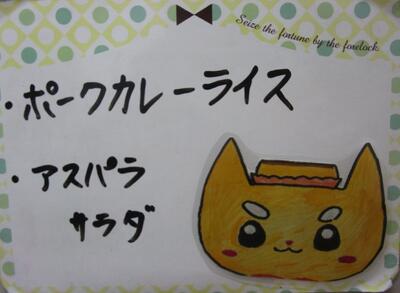 Seize the fortune by the forelock.
・ポークカレーライス
・アスパラ
サラダ